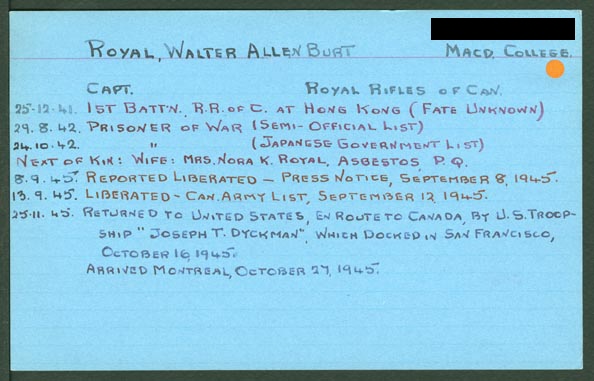 ROYAL, WALTER ALLEN BURT MACD. COLLEGE.
CAPT. ROYAL RIFLES OF CAN.
25-12-41. 1ST BATT'N. R.R. OF C. AT HONG KONG (FATE UNKNOWN)
29.8.42. PRISONER OF WAR (SEMI-OFFICIAL LIST)
24.10.42. " (JAPANESE GOVERNMENT LIST)
NEXT OF KIN: WIFE: MRS. NORA K. ROYAL, ASBESTOS, P.Q.
8.9.45. REPORTED LIBERATED - PRESS NOTICE, SEPTEMBER 8, 1945.
13.9.45. LIBERATED - CAN. ARMY LIST, SEPTEMBER 12, 1945.
25.11.45. RETURNED TO UNITED STATES, EN ROUTE TO CANADA, BY U.S. TROOP-
SHIP "JOSEPH T. DYCKMAN", WHICH DOCKED IN SAN FRANCISCO,
OCTOBER 16, 1945.
ARRIVED MONTREAL, OCTOBER 27, 1945.